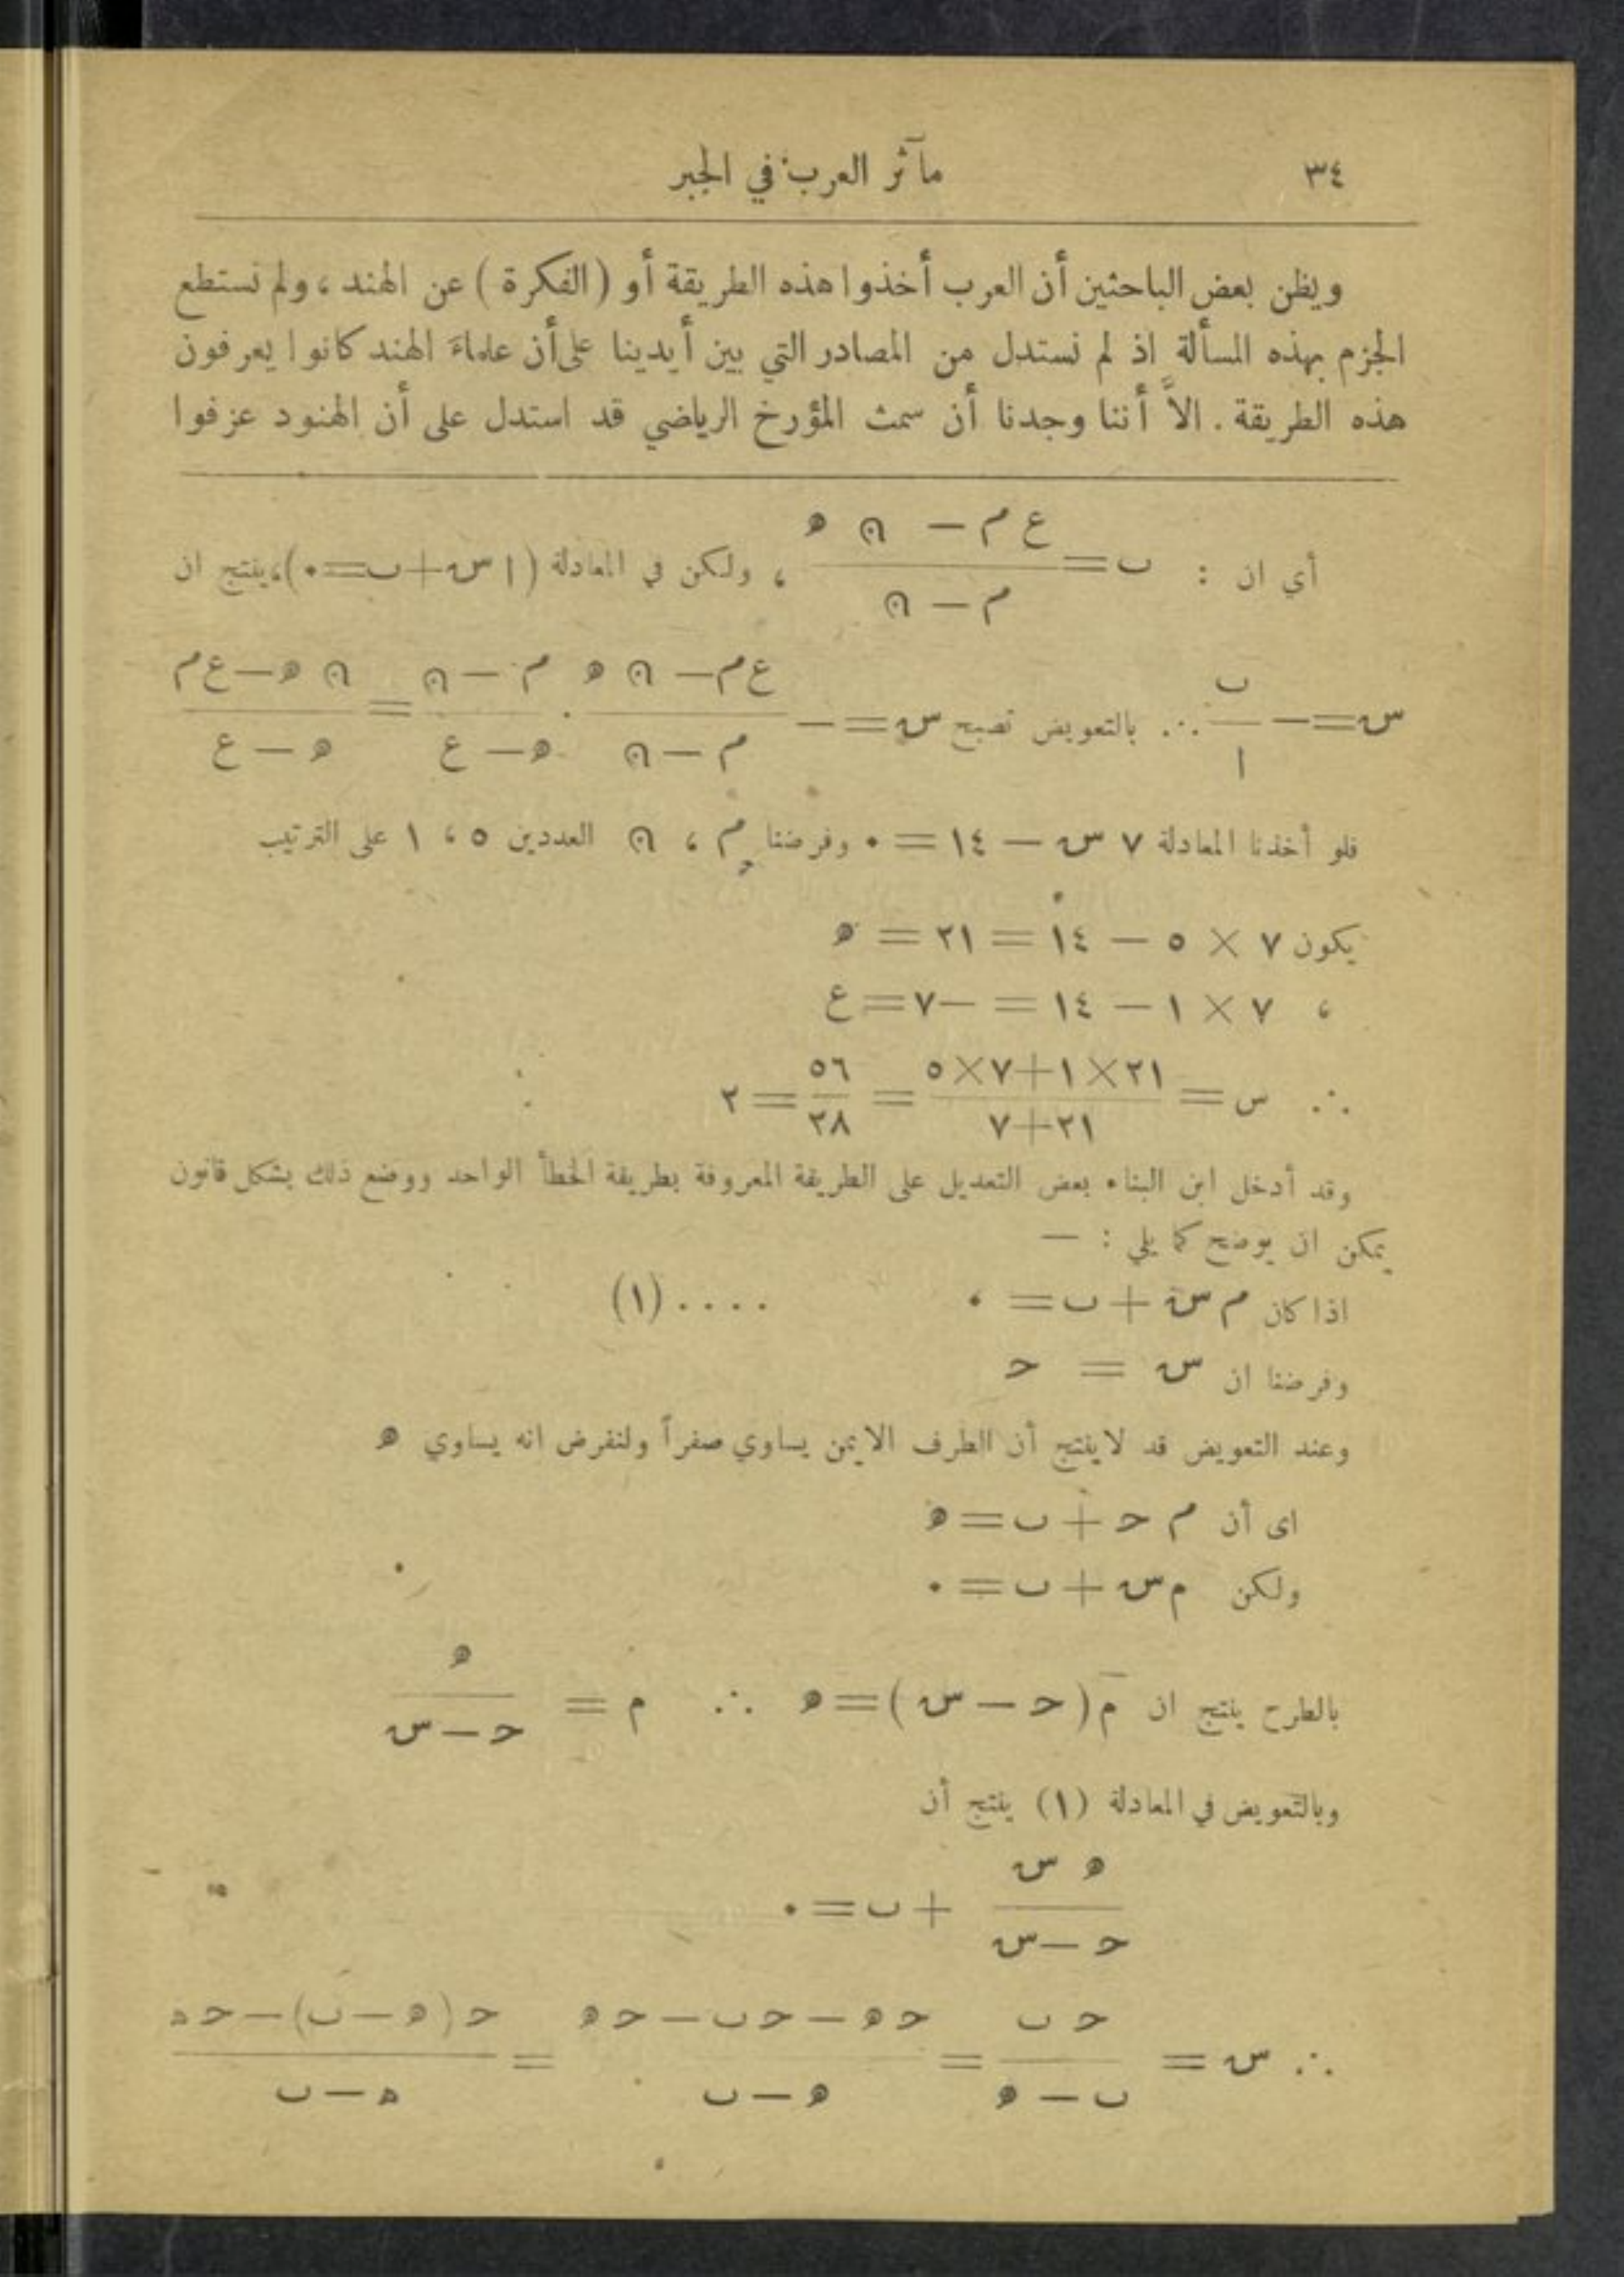 ٣٤ مآثر العرب في الجبر
ويظن بعض الباحثين أن العرب أخذوا هذه الطريقة أو (الفكرة) عن الهند، ولم نستطع
الجزم بهذه المسألة اذ لم نستدل من المصادر التي بين أيدينا على أن علماءَ الهند كانوا يعرفون
هذه الطريقة. الاَّ أننا وجدنا أن سمث المؤرخ الرياضي قد استدل على أن الهنود عزفوا
أي ان : ب = (ع م − ن ه) / (م − ن) ، ولكن في المعادلة (ا س + ب = ٠)، ينتج ان
س = − ب / ا ∴ بالتعويض تصبح س = − (ع م − ن ه) / (م − ن) · (م − ن) / (ه − ع) = (ن ه − ع م) / (ه − ع)
فلو أخذنا المعادلة ٧ س − ١٤ = ٠ وفرضنا م ، ن العددين ٥ ، ١ على الترتيب
يكون ٧ × ٥ − ١٤ = ٢١ = ه
، ٧ × ١ − ١٤ = −٧ = ع
∴ س = (٢١ × ١ + ٧ × ٥) / (٢١ + ٧) = ٥٦ / ٢٨ = ٢
وقد أدخل ابن البناء بعض التعديل على الطريقة المعروفة بطريقة الخطأ الواحد ووضع ذلك بشكل قانون
يمكن ان يوضح كما يلي : —
اذا كان م س + ب = ٠ .... (١)
وفرضنا ان س = ح
وعند التعويض قد لا ينتج أن الطرف الايمن يساوي صفراً ولنفرض انه يساوي ه
اى أن م ح + ب = ه
ولكن م س + ب = ٠
بالطرح ينتج ان م (ح − س) = ه ∴ م = ه / (ح − س)
وبالتعويض في المعادلة (١) ينتج أن
ه س / (ح − س) + ب = ٠
∴ س = ح ب / (ب − ه) = (ح ه − ح ب − ح ه) / (ه − ب) = (ح (ه − ب) − ح ه) / (ه − ب)